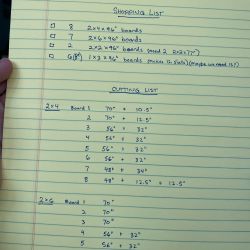 SHOPPING LIST
8 2x4x96" boards
7 2x6x96" boards
2 2x2x96" boards (need 2 2x2x77")
6(8?) 1x3x96" boards (makes 12 slats) (maybe we need 15?)
CUTTING LIST
2x4 Board 1 70" + 10.5"
2 70" + 12.5"
3 56" + 32"
4 56" + 32"
5 56" + 32"
6 56" + 32"
7 48" + 34"
8 48" + 12.5" + 12.5"
2x6 Board 1 70"
2 70"
3 70"
4 56" + 32"
5 56" + 32"